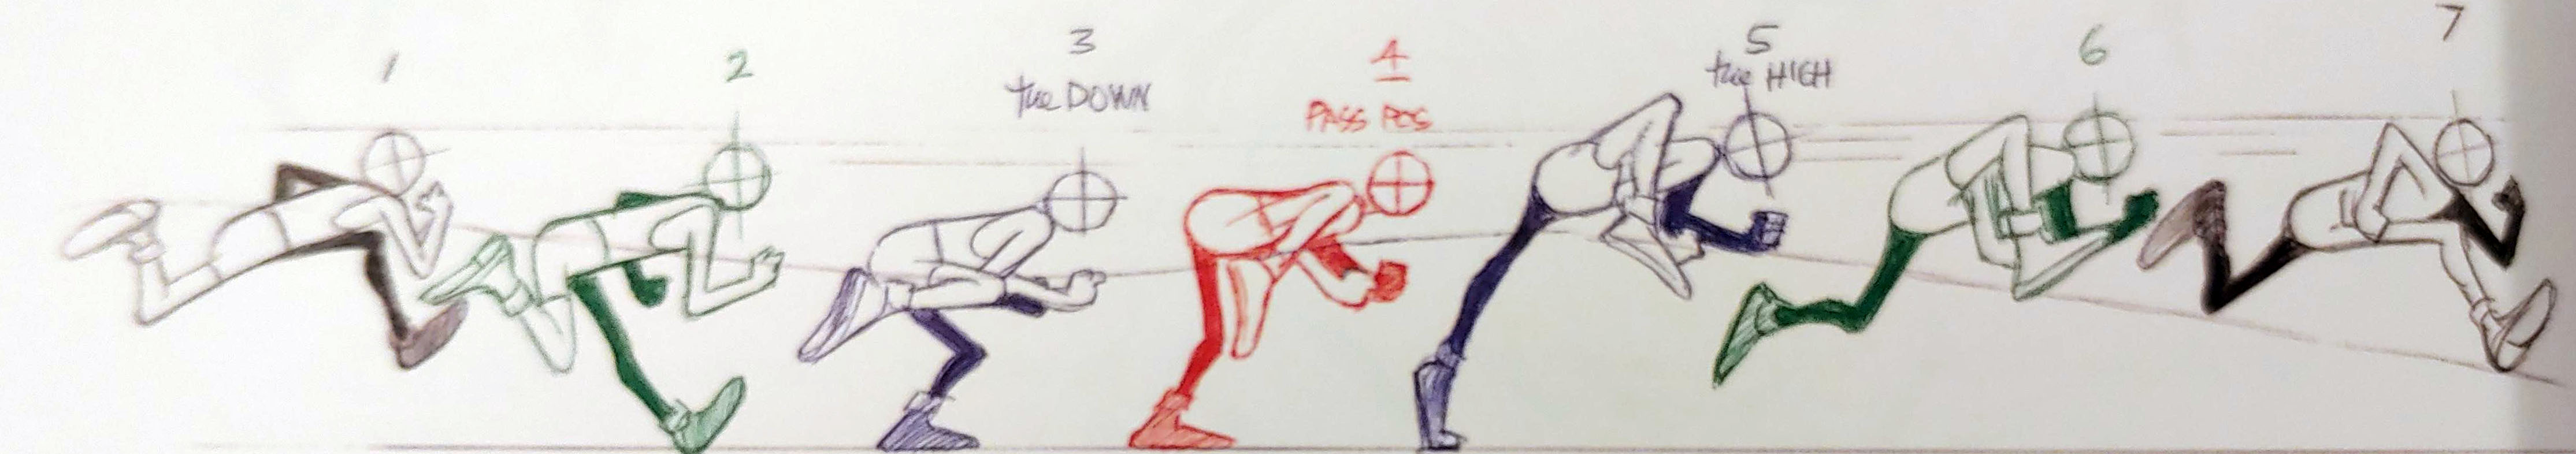 1
2
3
the DOWN
4
PASS POS
5
the HIGH
6
7